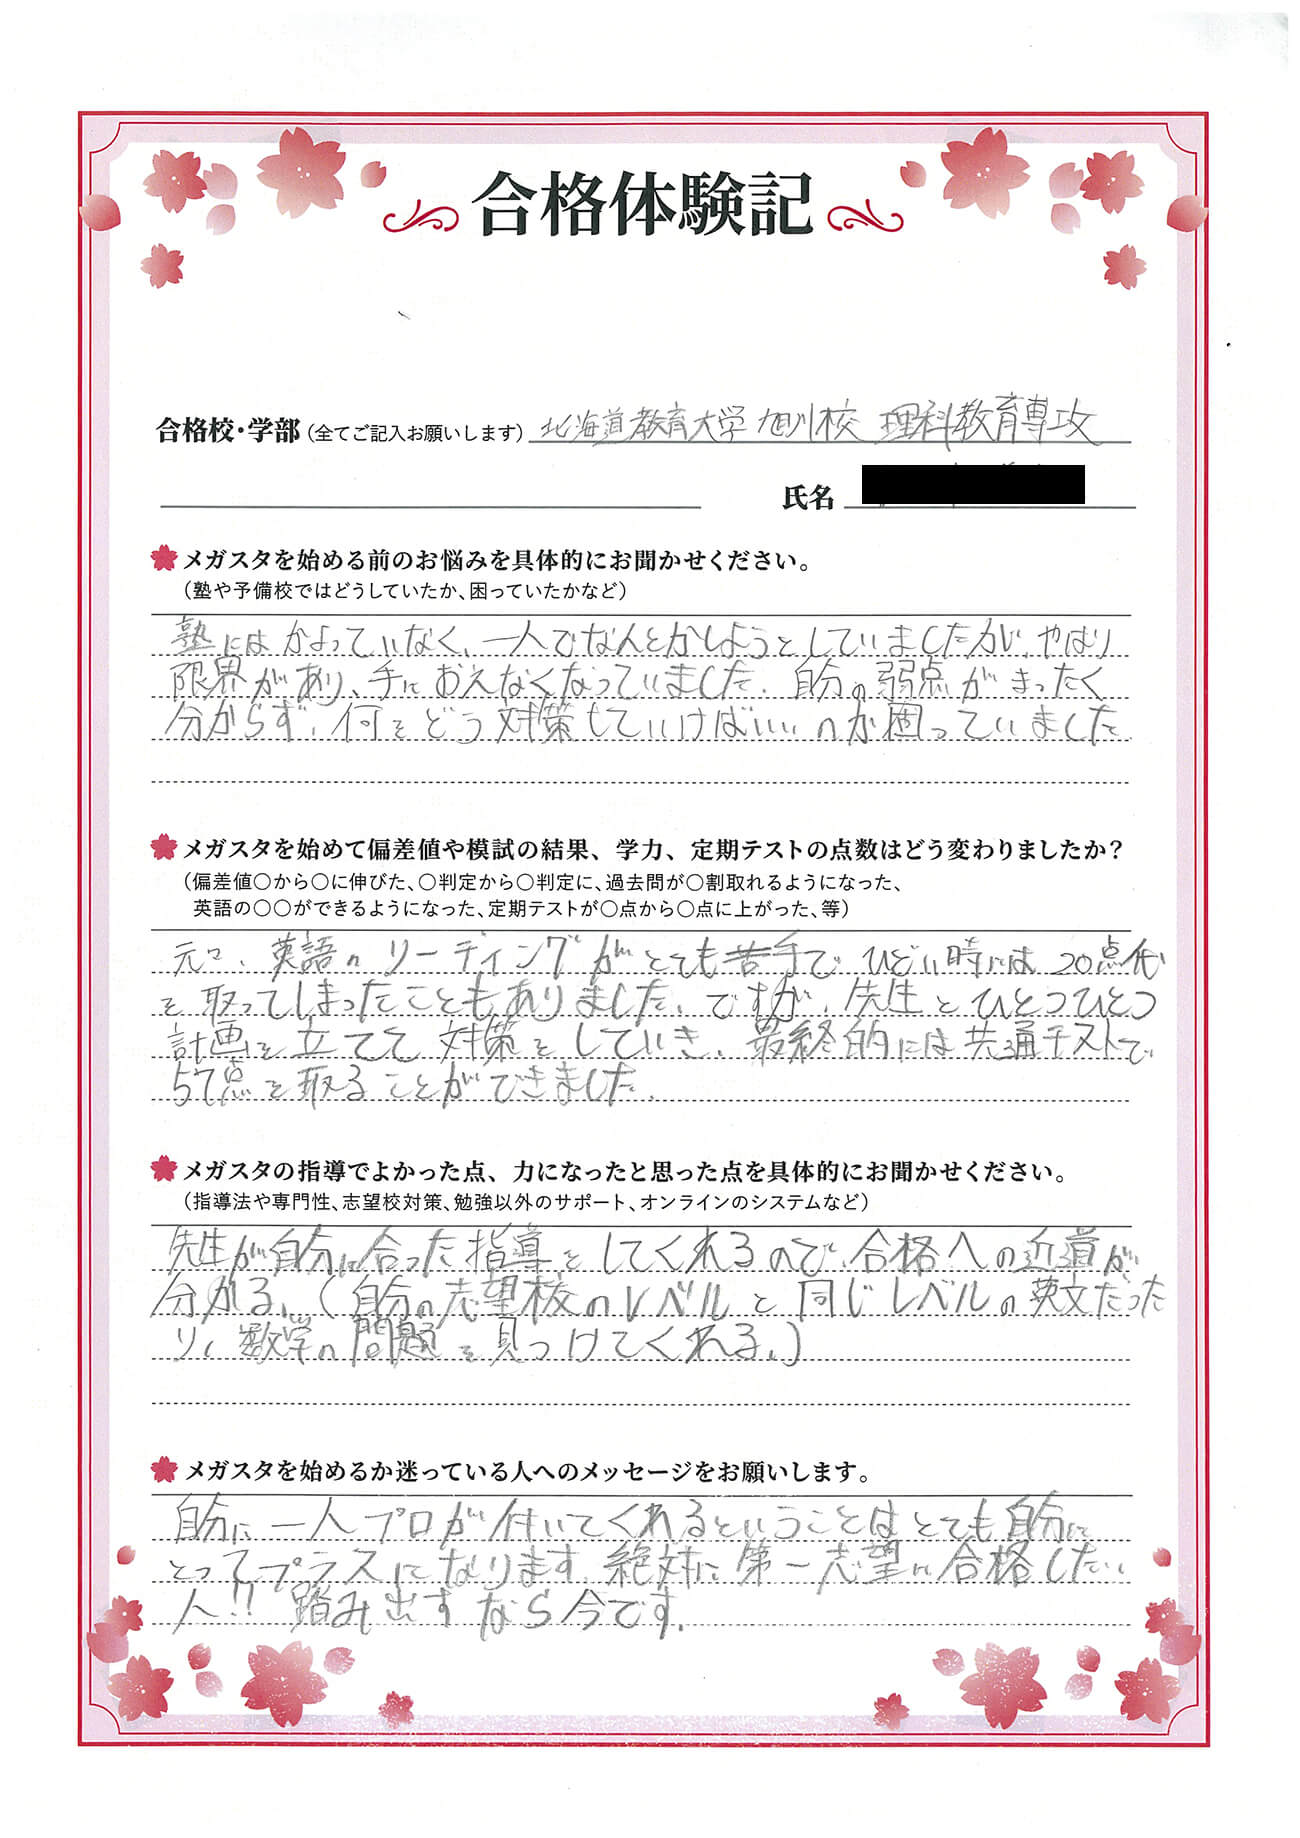 合格体験記
合格校・学部(全てご記入お願いします) 北海道教育大学 旭川校 理科教育専攻
氏名
メガスタを始める前のお悩みを具体的にお聞かせください。
(塾や予備校ではどうしていたか、困っていたかなど)
塾にはかよっていなく、一人でなんとかしようとしていましたが、やはり
限界があり、手におえなくなっていました。自分の弱点がまったく
分からず、何をどう対策していけばいいのか困っていました
メガスタを始めて偏差値や模試の結果、学力、定期テストの点数はどう変わりましたか?
(偏差値○から○に伸びた、○判定から○判定に、過去問が○割取れるようになった、
英語の○○ができるようになった、定期テストが○点から○点に上がった、等)
元々、英語のリーディングがとても苦手でひどい時には20点代
を取ってしまったこともありました。ですが、先生とひとつひとつ
計画を立てて対策をしていき、最終的には共通テストで
57点を取ることができました。
メガスタの指導でよかった点、力になったと思った点を具体的にお聞かせください。
(指導法や専門性、志望校対策、勉強以外のサポート、オンラインのシステムなど)
先生が自分に合った指導をしてくれるので、合格への近道が
分かる。(自分の志望校のレベルと同じレベルの英文だった
り、数学の問題を見つけてくれる。)
メガスタを始めるか迷っている人へのメッセージをお願いします。
自分に一人プロが付いてくれるということはとても自分に
とってプラスになります。絶対に第一志望に合格したい
人!! 踏み出すなら今です。